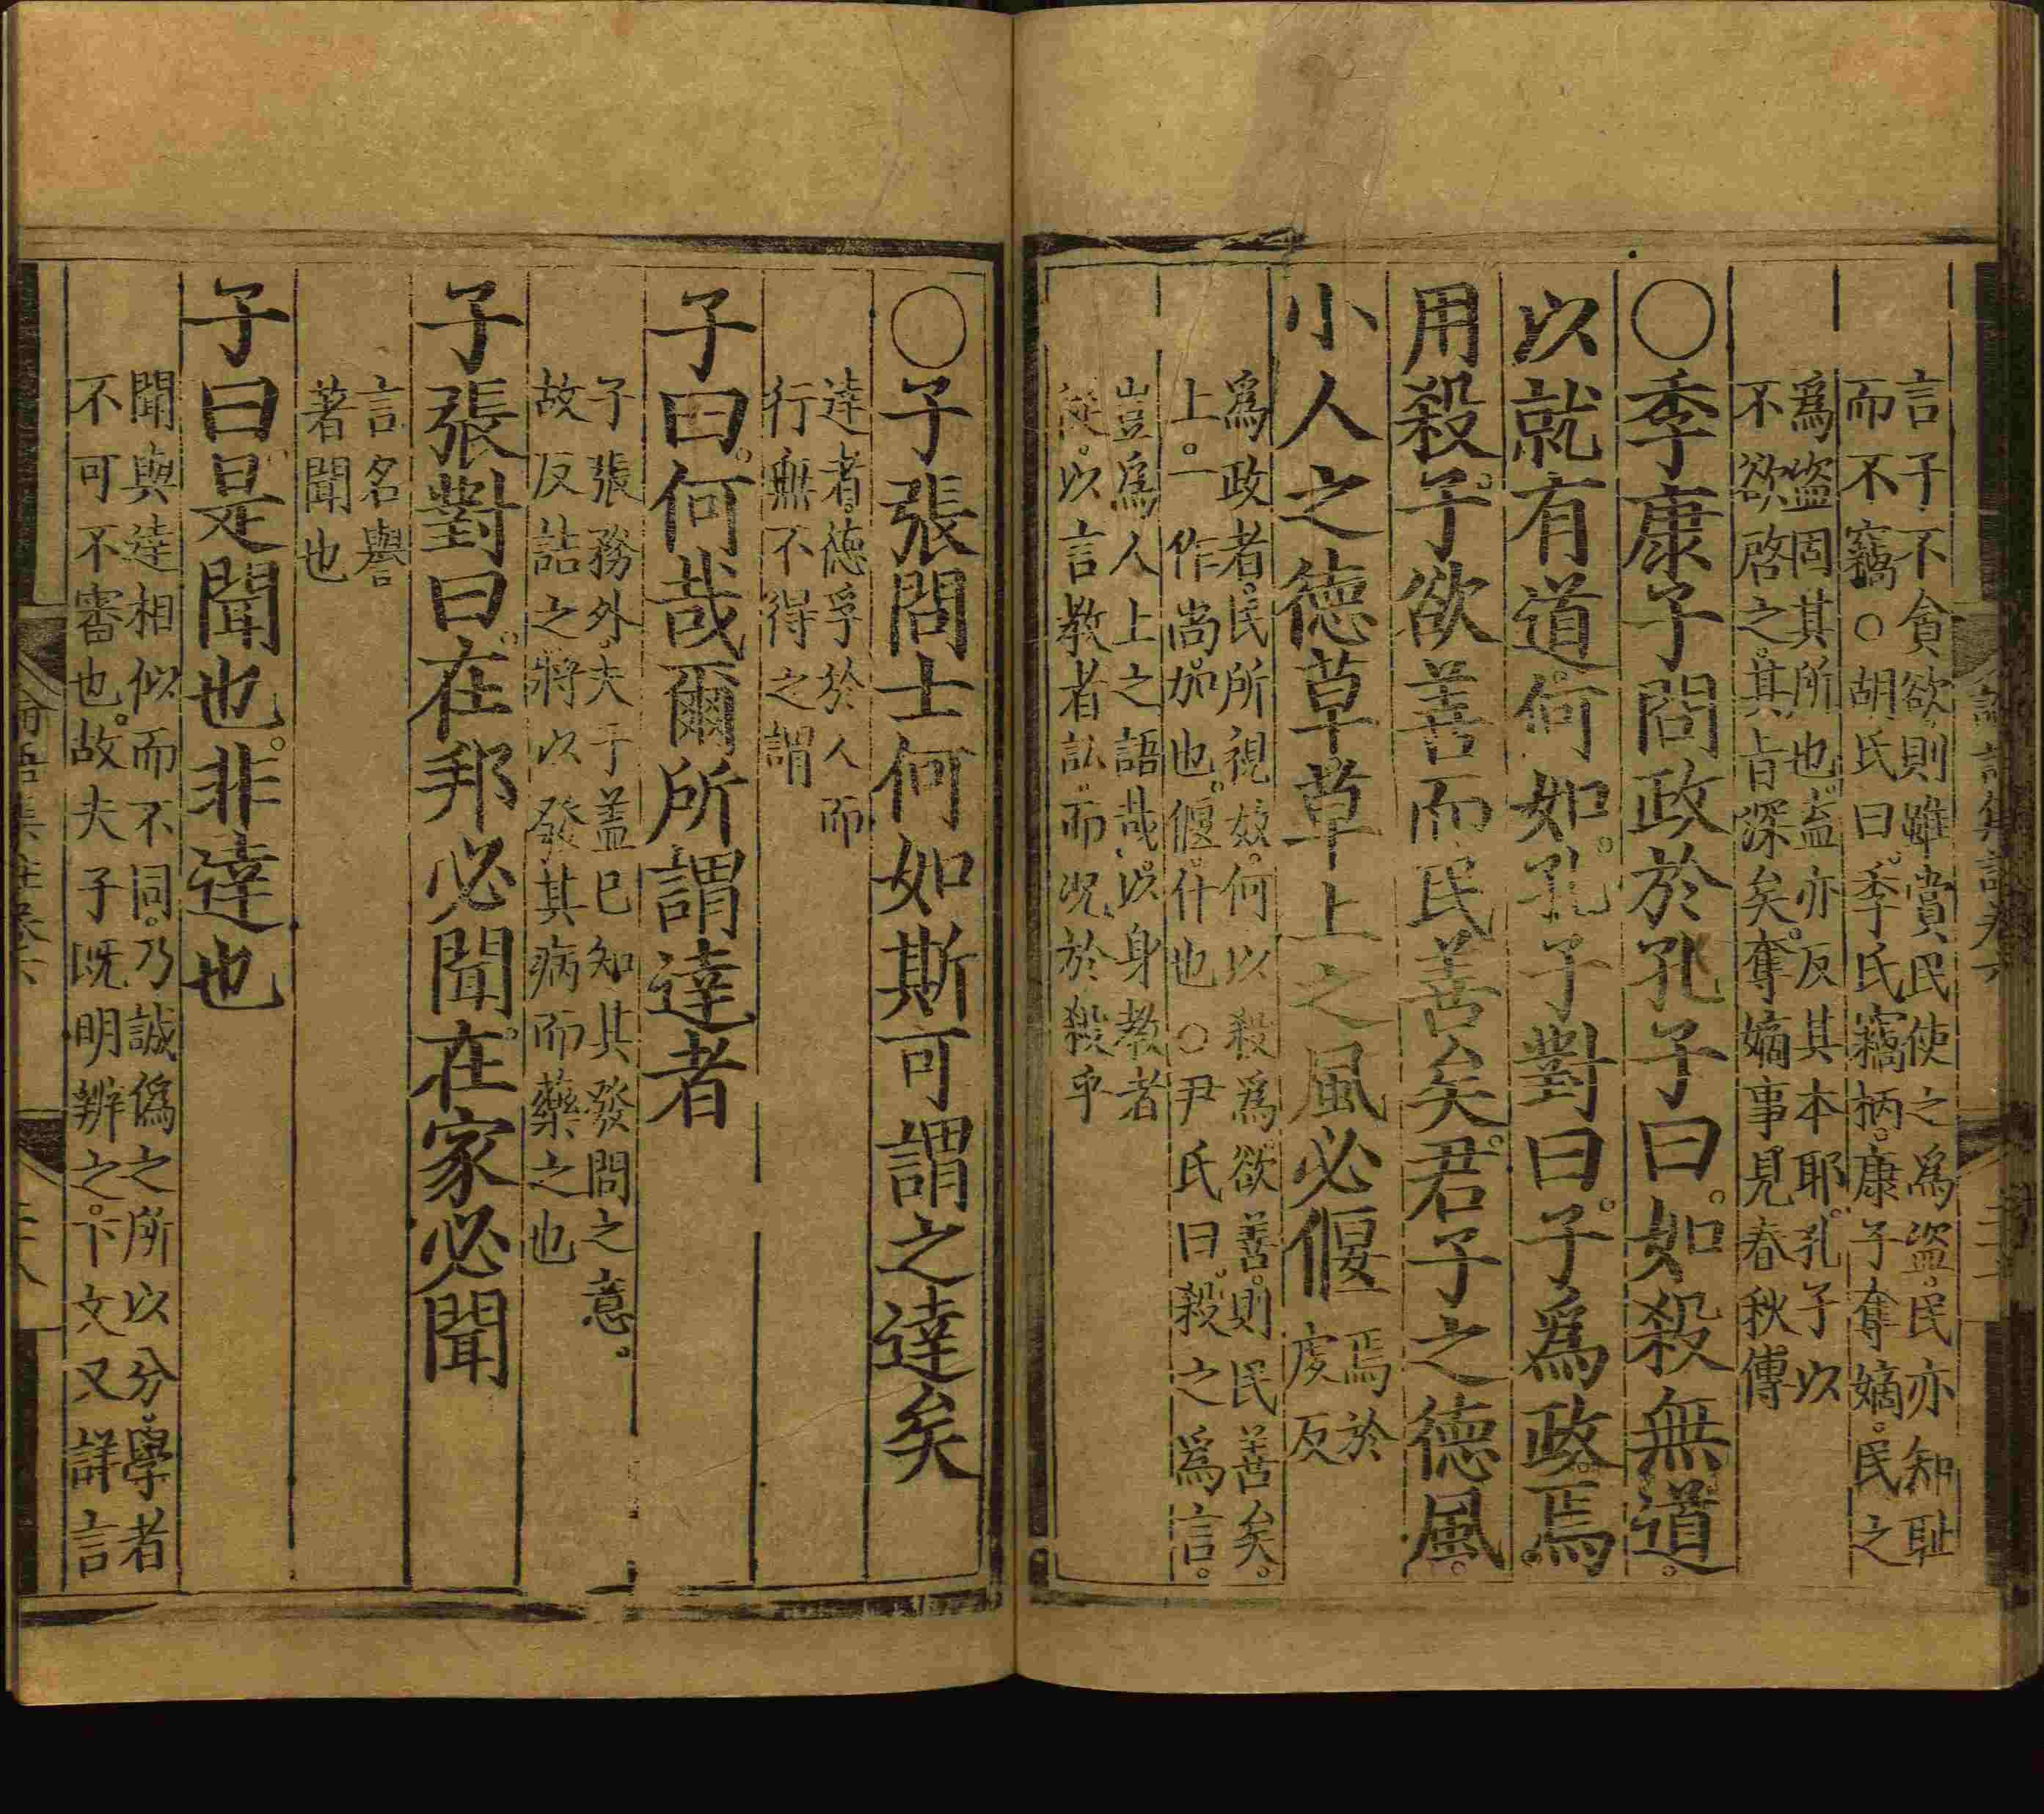 言子不貪欲則雖賞民使之爲盜民亦知耻
而不竊○胡氏曰季氏竊柄康子奪嫡民之
爲盜固其所也盍亦反其本耶孔子以
不欲啓之其旨深矣奪嫡事見春秋傳
○季康子問政於孔子曰如殺無道
以就有道何如孔子對曰子爲政焉
用殺子欲善而民善矣君子之德風
小人之德草草上之風必偃
焉於
虔反
爲政者民所視效何以殺爲欲善則民善矣
上一作尚加也偃仆也○尹氏曰殺之爲言
豈爲人上之語哉以身教者
從以言教者訟而况於殺乎
○子張問士何如斯可謂之達矣
達者德孚於人而
行無不得之謂
子曰何哉爾所謂達者
子張務外夫子盖已知其發問之意
故反詰之將以發其病而藥之也
子張對曰在邦必聞在家必聞
言名譽
著聞也
子曰是聞也非達也
聞與達相似而不同乃誠僞之所以分學者
不可不審也故夫子既明辨之下文又詳言